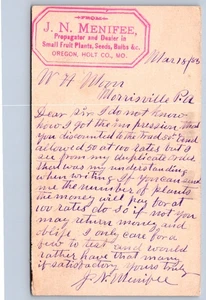 FROM
J. N. MENIFEE,
Propagator and Dealer in
Small Fruit Plants, Seeds, Bulbs &c.
OREGON, HOLT CO., MO.
Mar 18
W H Moon
Morrisville Pa
Dear Sir I do not know
how I got the impression that
you discounted to the trade and
allowed 50 at 100 rates but I
see from my duplicate order
that was my understanding
when writing. If you can send
me the number of plants
the money will pay for at
100 rates do so if not you
may return money and
oblige I only care for a
few to test and would
rather have that many
if satisfactory Yours truly
J. N. Menifee